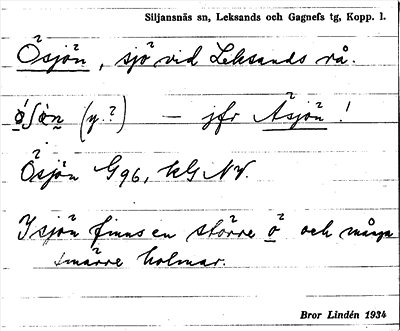 Siljansnäs sn, Leksands och Gagnefs tg, Kopp. l.
Ösjön, sjö vid Leksands rå.
(y?) — jfr Åsjön!
Ösjön G96, kG NV.
I sjön finns en större ö och många
smärre holmar.
Bror Lindén 1934